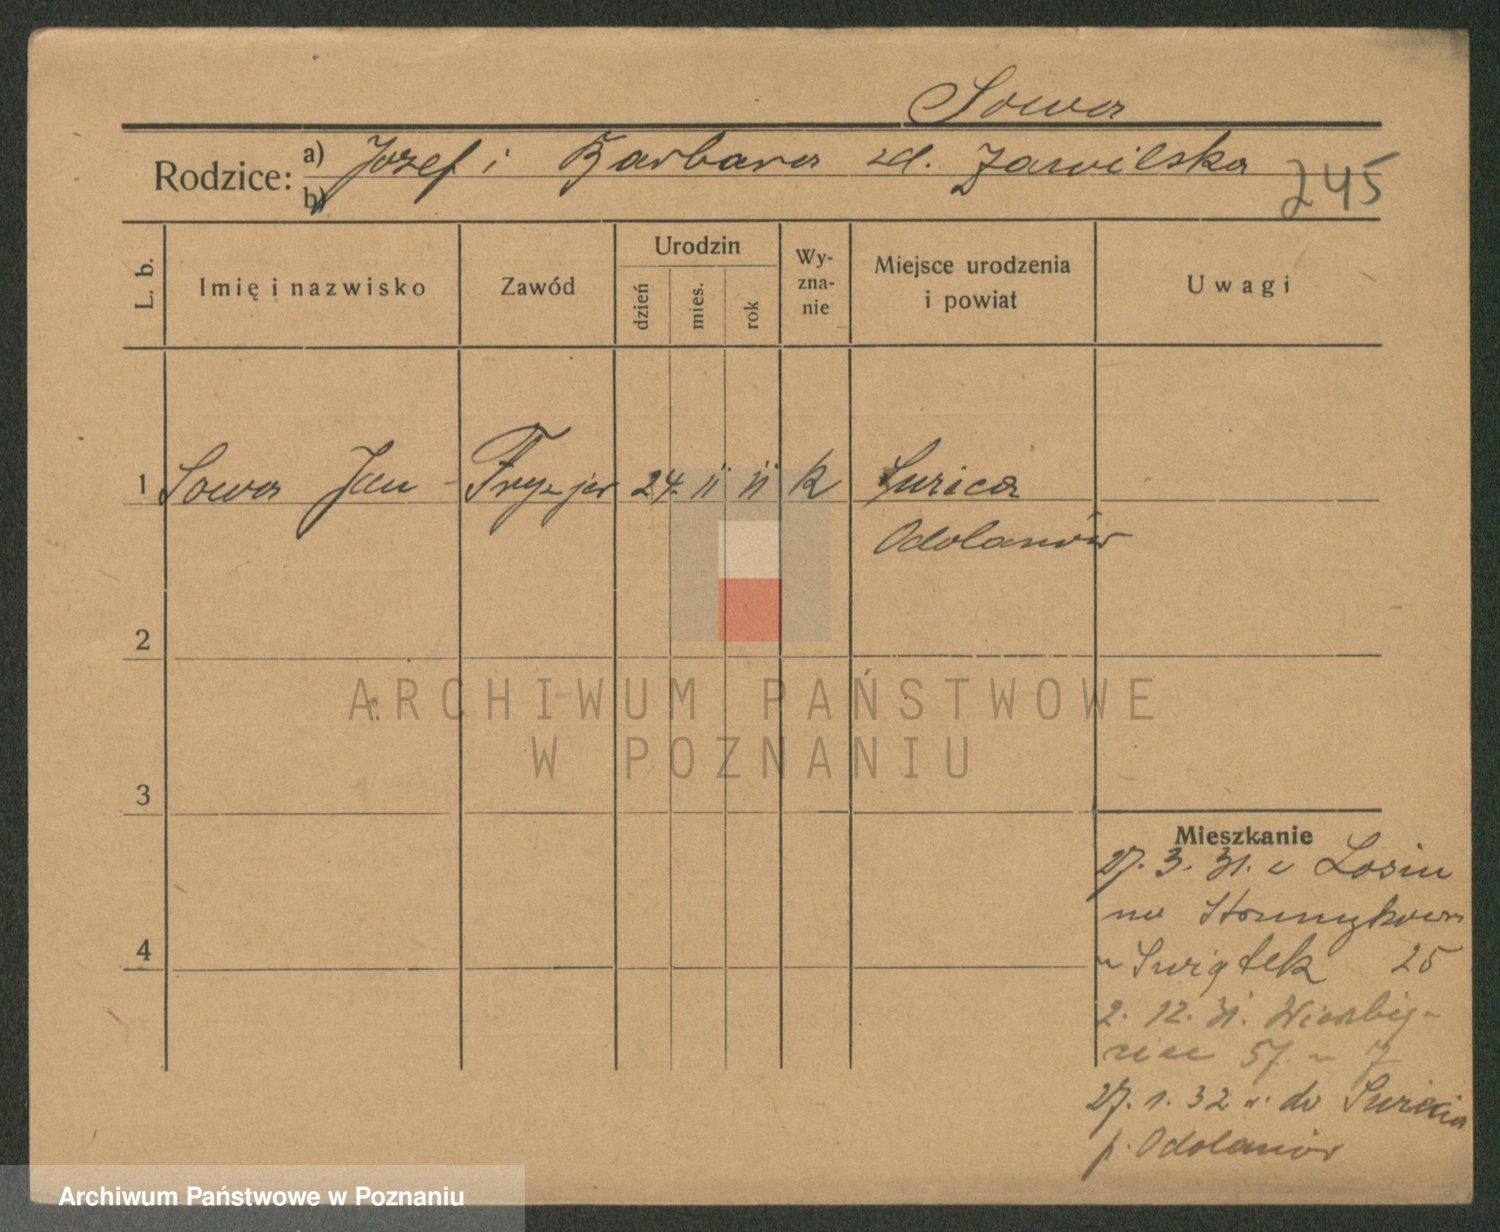 Sowa
Rodzice: a) Józef i Barbara zd. Zawilska
b)
245
L. b.
Imię i nazwisko
Zawód
Urodzin
dzień
mies.
rok
Wy-
zna-
nie
Miejsce urodzenia
i powiat
Uwagi
1 Sowa Jan - Fryzjer 24. 11 11 k
Odolanów
2
3
4
Mieszkanie
27. 3. 31. z
25
2. 12. 31. Wierzbię-
cice 57. m 7
27. 1. 32 w. do
p. Odolanów
ARCHIWUM PAŃSTWOWE
W POZNANIU
Archiwum Państwowe w Poznaniu